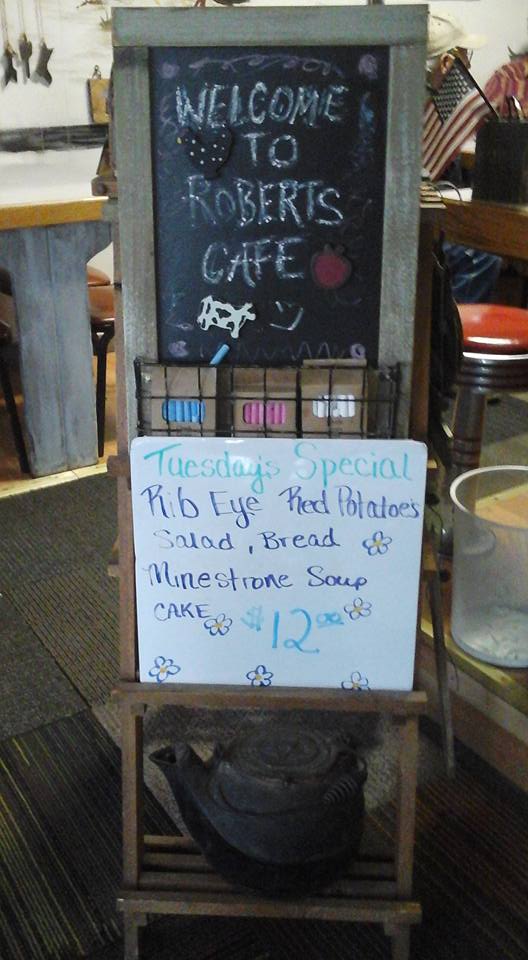 WELCOME
TO
ROBERTS
CAFE
Tuesday's Special
Rib Eye Red Potatoes
Salad, Bread
Minestrone Soup
CAKE $12.00